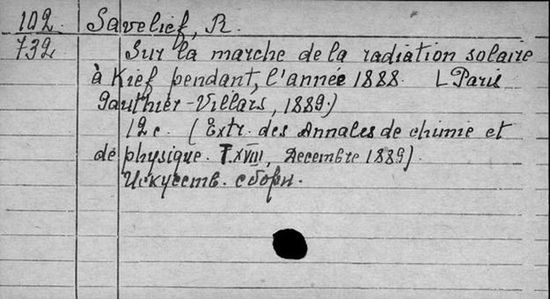 102 Savelief, R.
732 Sur la marche de la radiation solaire
à Kief pendant, l'année 1888. [Paris
Gauthier-Villars, 1889.)
12 c. (Extr. des Annales de chimie et
de physique. T. XVIII, Decembre 1889).
Искусств. сборн.